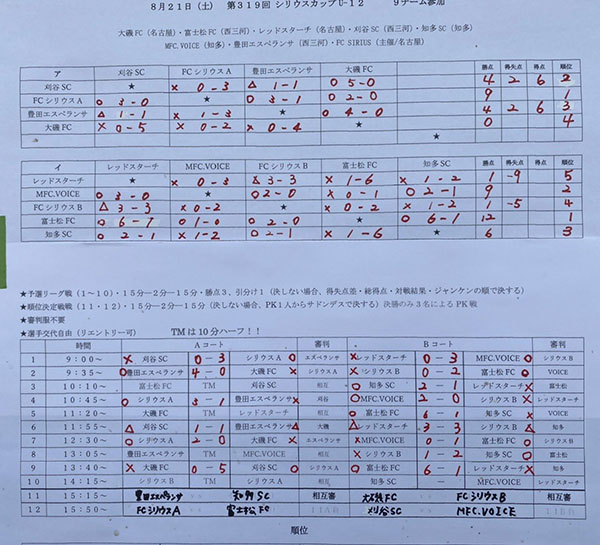 8月21日(土) 第319回 シリウスカップU-12 9チーム参加
大磯FC(名古屋)・富士松FC(西三河)・レッドスターチ(名古屋)・刈谷SC(西三河)・知多SC(知多)
MFC.VOICE(知多)・豊田エスペランサ(西三河)・FC SIRIUS(主催/名古屋)
ア 刈谷SC FCシリウスA 豊田エスペランサ 大磯FC 勝点 得失点 得点 順位
刈谷SC ★ × 0-3 △ 1-1 ○ 5-0 4 2 6 2
FCシリウスA ○ 3-0 ★ ○ 3-1 ○ 2-0 9 1
豊田エスペランサ △ 1-1 × 1-3 ★ ○ 4-0 4 2 6 3
大磯FC × 0-5 × 0-2 × 0-4 ★ 0 4
★
イ レッドスターチ MFC.VOICE FCシリウスB 富士松FC 知多SC 勝点 得失点 得点 順位
レッドスターチ ★ × 0-3 △ 3-3 × 1-6 × 1-2 1 -9 5
MFC.VOICE ○ 3-0 ★ ○ 2-0 × 0-1 ○ 2-1 9 2
FCシリウスB △ 3-3 × 0-2 ★ × 0-2 × 1-2 1 -5 4
富士松FC ○ 6-1 ○ 1-0 ○ 2-0 ★ ○ 6-1 12 1
知多SC ○ 2-1 × 1-2 ○ 2-1 × 1-6 ★ 6 3
★予選リーグ戦(1~10)・15分―2分―15分・勝点3、引分け1(決しない場合、得失点差・総得点・対戦結果・ジャンケンの順で決する)
★順位決定戦(11・12)・15分―2分―15分(決しない場合、PK1人からサドンデスで決する)決勝のみ3名によるPK戦
★審判服不要
★選手交代自由(リエントリー可) TMは10分ハーフ!!
時間 Aコート 審判 Bコート 審判
1 9:00~ × 刈谷SC 0-3 シリウスA ○ エスペランサ × レッドスターチ 0-3 MFC.VOICE ○ シリウスB
2 9:35~ ○ 豊田エスペランサ 4-0 大磯FC × シリウスA × シリウスB 0-2 富士松FC ○ VOICE
3 10:10~ 富士松FC TM 大磯FC 相互 ○ 知多SC 2-1 レッドスターチ × 富士松
4 10:45~ ○ シリウスA 3-1 豊田エスペランサ × 刈谷 ○ MFC.VOICE 2-0 シリウスB × レッドスターチ
5 11:20~ 大磯FC TM レッドスターチ 相互 ○ 富士松FC 6-1 知多SC × VOICE
6 11:55~ △ 刈谷SC 1-1 豊田エスペランサ △ 大磯 △ レッドスターチ 3-3 シリウスB △ 知多
7 12:30~ ○ シリウスA 2-0 大磯FC × エスペランサ × MFC.VOICE 0-1 富士松FC ○ シリウスB
8 13:05~ 豊田エスペランサ TM MFC.VOICE 相互 × シリウスB 1-2 知多SC ○ 富士松
9 13:40~ × 大磯FC 0-5 刈谷SC ○ シリウスA ○ 富士松FC 6-1 レッドスターチ × 知多
10 14:15~ シリウスB TM 刈谷SC 相互 知多SC - MFC.VOICE レッドスターチ
11 15:15~ 豊田エスペランサ 知多SC 相互審 大磯FC FCシリウスB 相互審
12 15:50~ FCシリウスA 富士松FC 刈谷SC MFC.VOICE
順位